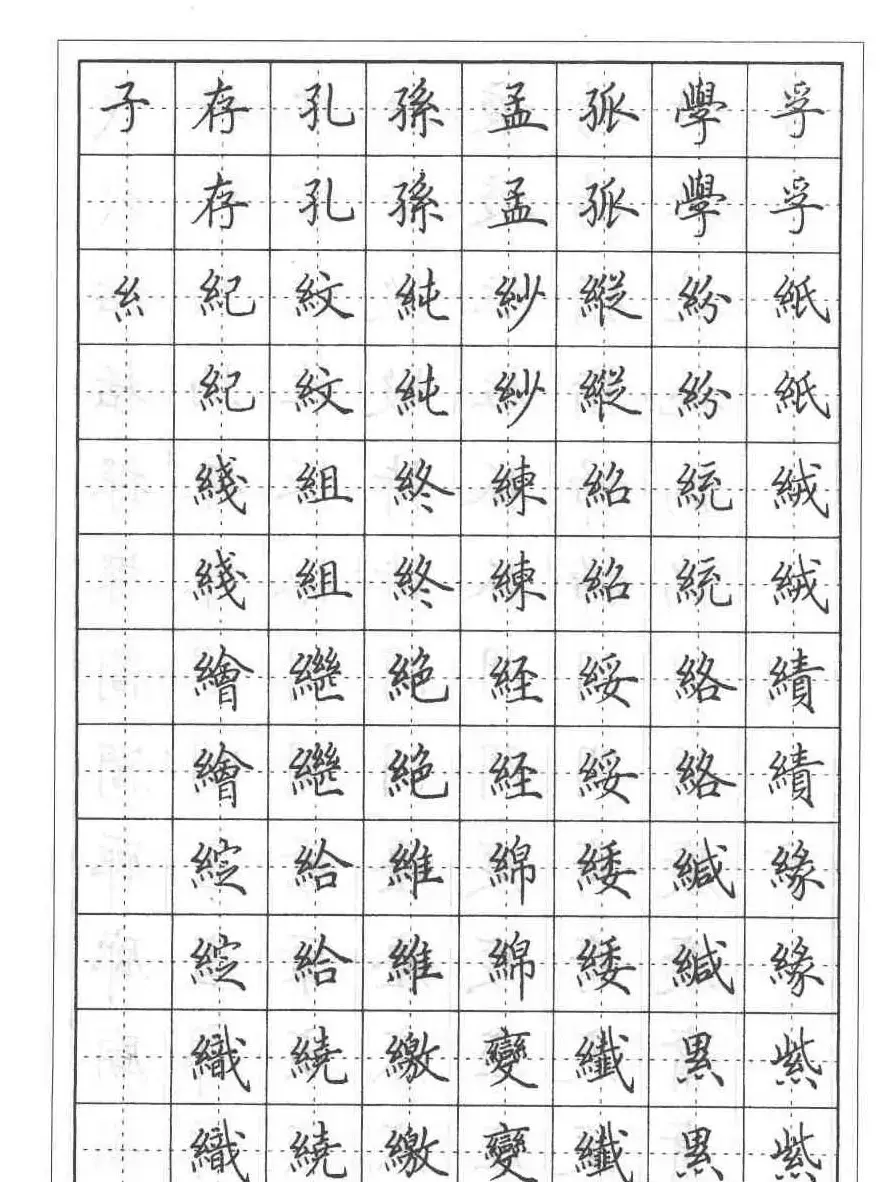 子存孔孫孟孤學孚
存孔孫孟孤學孚
糹紀紋純紗縱紛紙
紀紋純紗縱紛紙
綫組終練紹統絨
綫組終練紹統絨
繪繼絕經綏絡績
繪繼絕經綏絡績
綻給維綿緌緘緣
綻給維綿緌緘緣
織繞繳變纖累紫
織繞繳變纖累紫